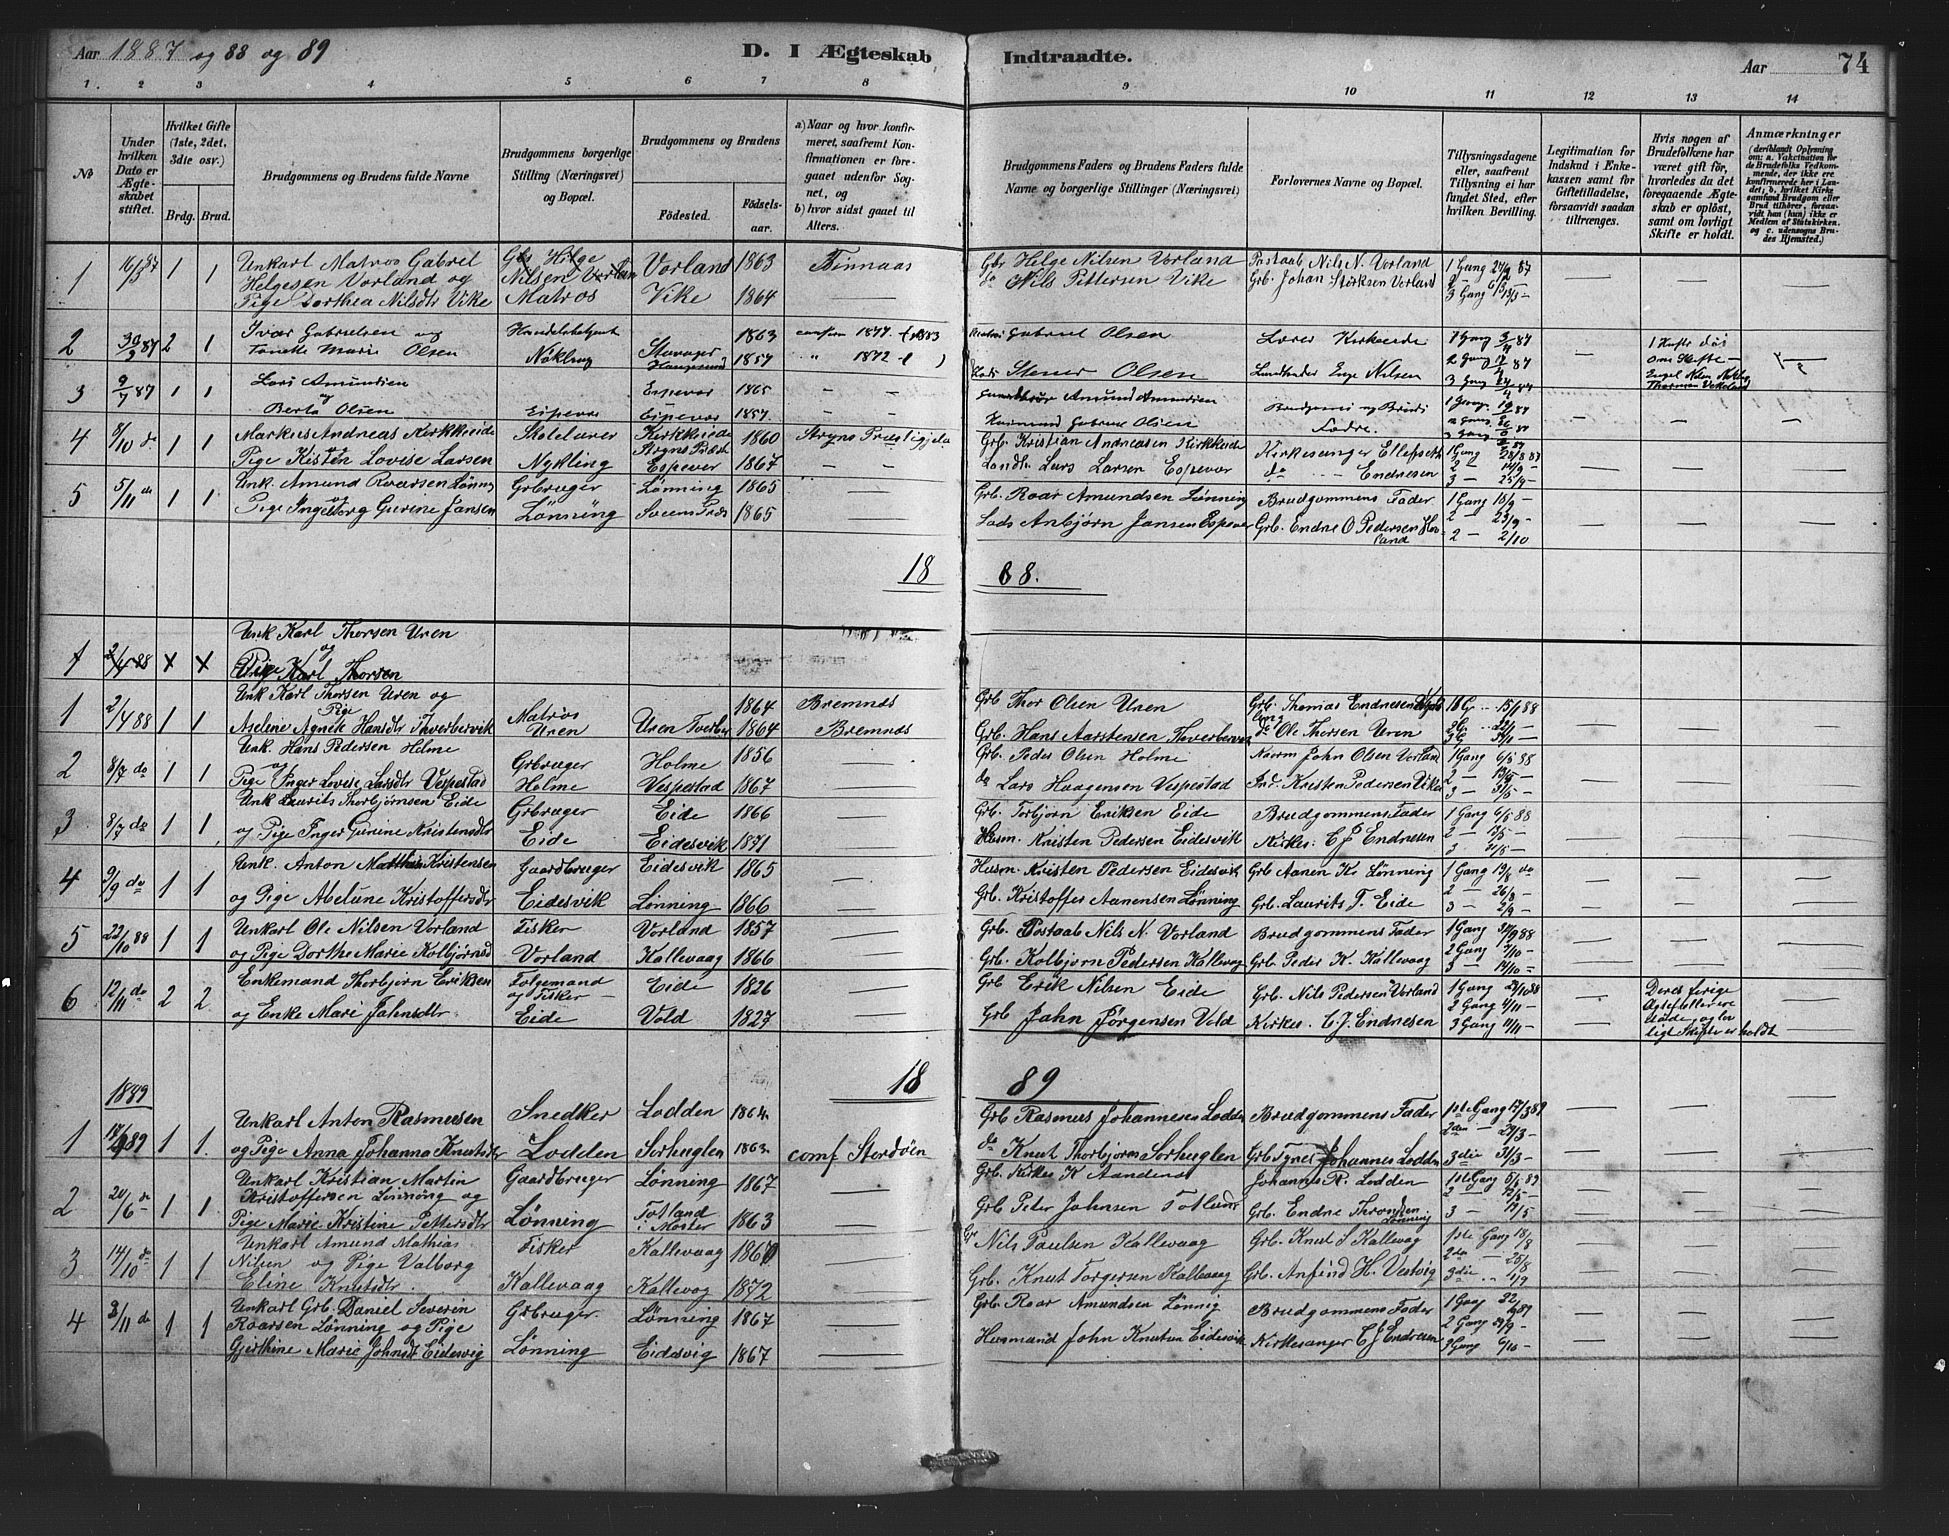 Aar 1887 og 88 og 89
D. I Ægteskab Indtraadte.
Aar 74
1. 2 3 4 5 6 7 8 9 10 11 12 13 14
No
Under hvilken Dato er Ægteskabet stiftet.
Hvilket Gifte (1ste, 2det, 3die osv.)
Brdg. Brud.
Brudgommens og Brudens fulde Navne
Brudgommens borgerlige Stilling (Næringsvei) og Bopæl.
Brudgommens og Brudens
Fødested.
Fødselsaar.
a) Naar og hvor konfirmeret, saafremt Konfirmationen er foregaaet udenfor Sognet, og
b) hvor sidst gaaet til Alters.
Brudgommens Faders og Brudens Faders fulde Navne og borgerlige Stillinger (Næringsvei)
Forlovernes Navne og Bopæl.
Tillysningsdagene eller, saafremt Tillysning ei har fundet Sted, efter hvilken Bevilling.
Legitimation for Indskud i Enkekassen samt for Giftetilladelse, forsaavidt saadan tiltrænges.
Hvis nogen af Brudefolkene har været gift før, hvorledes da det foregaaende Ægteskab er opløst, samt om lovligt Skifte er holdt.
Anmærkninger (deriblandt Oplysning om: a. Vakcination for de Brudefolks Vedkommende, der ikke ere konfirmerede her i Landet; b. hvilket Kirkesamfund Brudgom eller Brud tilhører, forsaavidt han (hun) ikke er Medlem af Statskirken. og c. udensogns Brudes Hjemsted.)
1 16/3 87 1 1 Unkarl Matros Gabriel Gbr Helge Vorland 1863 Finnaas Gbr Helge Nilsen Vorland Postaab Nils N. Vorland 1 Gang 27/2 87
Helgesen Vorland og Nilsen Vorland
Pige Dorthea Nilsdtr Vike Matros Vike 1864 do Nils Pittersen Vike Grb. Johan Størksen Vorland 2 6/3
3 Gang 13/3 -
2 30/3 87 2 1 Ivar Gabrielsen og 1863 conferm 1877 Gabriel Olsen Lærer Kirkeeide 1 Gang 3/4 87 1 Hafte død
Marie Olsen Nøkling Stavager 1857 " 1872 Stener Olsen Enge Nilsen 2 Gang 17/4 87
3 Gang 24/4 87
3 9/7 87 1 1 Lars Amundsen Espevær 1865 - - Amund Amundsen Brudgomens og Bruds 1 Gang
og
Berta Olsen Espevær Espevær 1857 Gabriel Olsen Fadre.
4 8/10 do 1 1 Markus Andreas Kirkkeeide Skolelærer Kirkkeeide 1860 Stryns Præstegjeld Grb. Kristian Andreasen Kirkeeide Kirkesanger Ellefsen 1 Gang 28/8 87
Pige Kisten Lovise Larsen Nykling Espevær 1867 - - Lars Larsen Espevær do - Endresen 2 - 14/9 -
3 - 25/9 -
5 5/11 do 1 1 Unk. Amund Roarsen Lønning Grbruger Lønning 1865 Grb. Roar Amundsen Lønning Brudgommens Fader 1 Gang 18/9 -
og
Pige Ingeborg Gurine Jansen Lønning 1865 Lods Anbjørn Jansen Espevær Grb. Endre O Pedersen Hovland 2 - 23/9 -
2 - 2/10
18 88.
1 2/4 88 x x Unk Karl Thorsen Uren
og
Pige Karl Thorsen
1 2/4 88 1 1 Unk Karl Thorsen Uren og Matros 1864 Bremnes Grb Thor Olsen Uren Grb. Thomas Endresen 1 G 15/1 88
Pige
Aselene Agnete Hansdtr Thverbervik Uren Uren 1864 Bremnes Grb. Hans Aartsen Thverbervik do Ole Thorsen Uren 2 G 22/1 -
2 8/7 do 1 1 Unk. Hans Pedersen Holme Grbruger Holme 1856 Grb. Peder Olsen Holme John Olsen Vorland 1 Gang 6/5 88
og
Pige Inger Lovise Larsdtr Vespestad Holme Vespestad 1867 do Lars Haagensen Vespestad Kristen Pedersen Viken 2 -
3 -
3 8/7 do 1 1 Unk Laurits Thorbjørnsen Eide Grbruger Eide 1866 Grb. Torbjørn Eriksen Eide Brudgommens Fader 1 Gang 6/5 88
og Pige Inger Gurine Kristensdtr Eide Eidesvik 1871 Husm. Kristen Pedersen Eidesvik Kirkes. C J Endresen 2 -
3 31/5 -
4 9/9 do 1 1 Unk. Anton Matthias Kristensen Gaardbruger Eidesvik 1865 Husm. Kristen Pedersen Eidesvik Grb Aanen Kr. Lønning 1 Gang 19/8 do
og Pige Abelune Kristoffersdtr Eidesvik Lønning 1866 Grb. Kristoffer Aanensen Lønning Grb. Laurits T. Eide 2 - 26/8 -
3 - 2/9 -
5 22/10 88 1 1 Unkarl Ole Nilsen Vorland Fisker Vorland 1857 Grb. Postaab Nils N. Vorland Brudgommens Fader 1 Gang 30/9 88
og Pige Dorthe Marie Kolbjørnsd Vorland Kallevaag 1866 Grb. Kolbjørn Pedersen Kallevaag Grb. Peder K. Kallevaag 2 Gang 7/10 -
3 - 14/10 -
6 12/11 do 2 2 Enkemand Thorbjørn Eriksen Folgemand Eide 1826 Grb Erik Nilsen Eide Grb. Nils Pedersen Vorland 1 Gang 28/10 88 Deres forige
og Fisker
og Enke Mari Jahnsdtr. Eide Vold 1827 Grb Jahn Jørgensen Vold Kirkes. C. J. Endresen 2 Gang 4/11 - Ægtefæller ere
3 Gang 11/11 - døde, og lovligt Skifte er holdt
18 89
1889
1 1 1. Unkarl Anton Rasmussen Snedker Lodden 1864. Grb Rasmus Johannesen Lodden Brudgommens Fader 1ste Gang 17/3 89
og Pige Anna Johanna Knutsdtr Lodden Sorhuglen 1863. comf Stordøen do Knut Thorbjørns Sorhuglen Johannes Lodden 2den - 24/3 -
3die - 31/3 -
2 20/6 do 1 1 Unkarl Kristian Martin Gaardbruger Lønning 1867 Grb. Kirkes K Aandenes Johannes R. Lodden 1ste Gang 5/5 89
Kristoffersen Lønning og
Pige Marie Kristine Pettersdtr Lønning Totland i Moster 1863 Grb Peter Johnsen Totland Grb. Endre Thronsen Lønning 2 - 12/5 -
3 - 19/5
3 14/10 do 1 1 Unkarl Amund Mathias Fisker Kallevaag Nils Paulsen Kallevaag Grb. Knut S Kallevag 1ste Gang 18/8
Nilsen og Pige Valborg
Eline Knutsdtr. Kallevaag Kallevog 1872 Grb. Knut Torgersen Kallevaag Grb. Anfind H. Vestvig 2de - 25/8
3die " 1/9
4 3/11 do 1 1 Unkarl Grb. Daniel Severin Grbruger. Lønning 1867 Grb. Roar Amundsen Lønnig Brudgommens Fader 1 Gang 22/9 89
Roarsen Lønning og Pige
Gjerthine Marie Johnsdt Eidesvig Lønning Eidesvig 1867 Husmand John Knutsen Eidesvik Kirkesanger C J Endresen 2 Gang 29/9 -
3 Gang 6/10 -